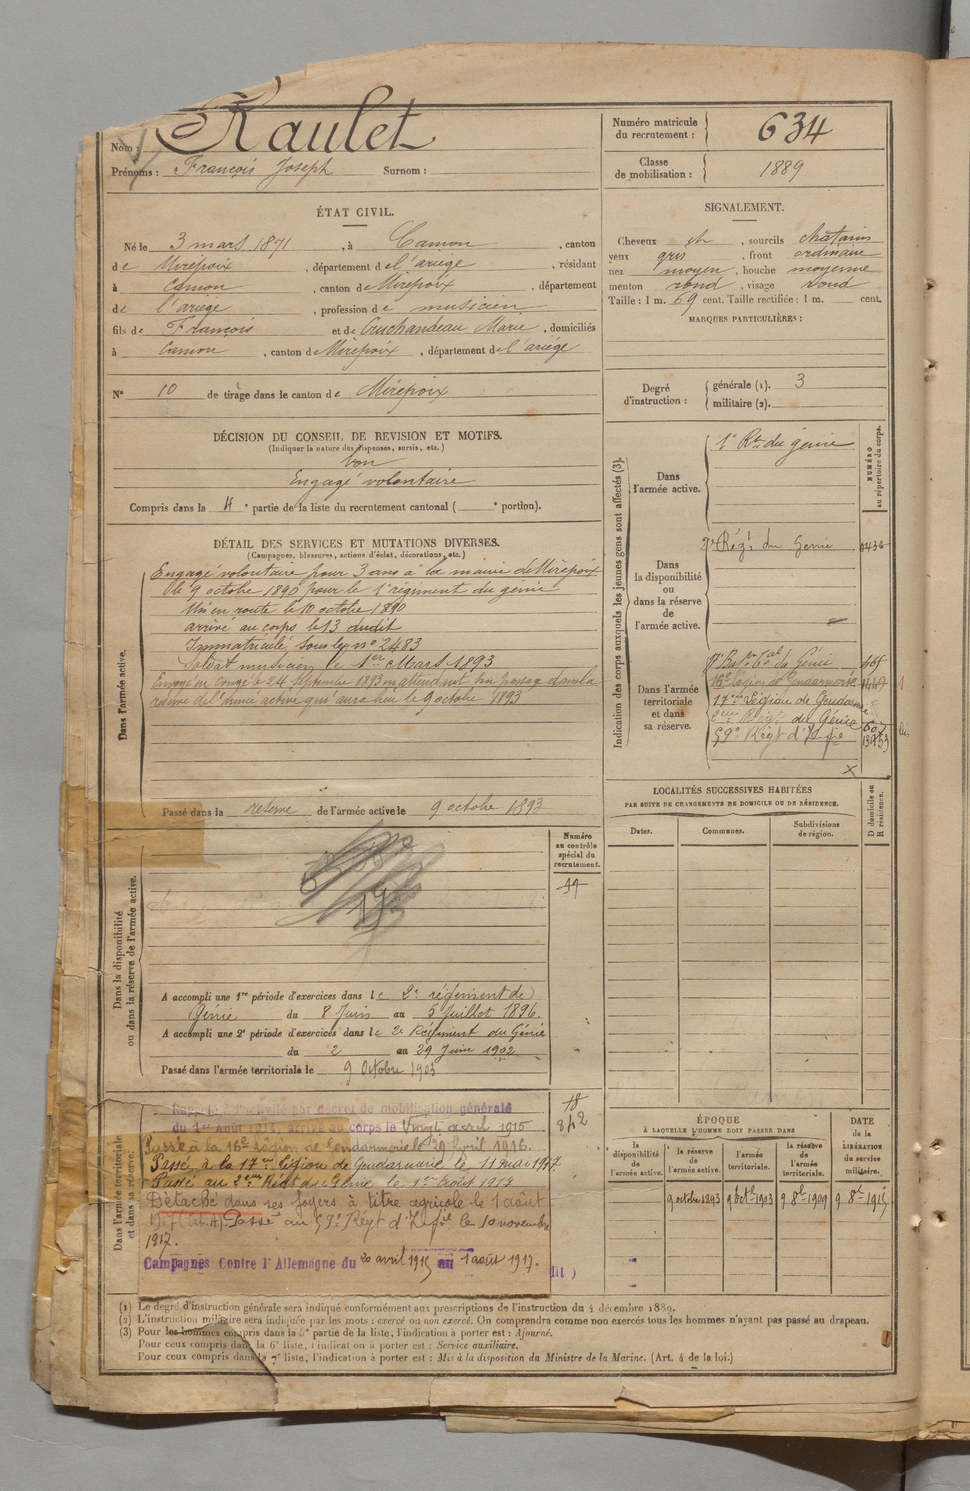 Nom : Raulet
Prénoms : François Joseph Surnom :
Numéro matricule du recrutement : 634
Classe de mobilisation : 1889
ÉTAT CIVIL.
Né le 3 mars 1871, à Camon, canton
de Mirepoix, département de l'ariège, résidant
à Camon, canton de Mirepoix, département
de l'ariège, profession de musicien
fils de François et de Cruchandeau Marie, domiciliés
à Camon, canton de Mirepoix, département de l'ariége
N° 10 de tirage dans le canton de Mirepoix
DÉCISION DU CONSEIL DE REVISION ET MOTIFS.
(Indiquer la nature des dispenses, sursis, etc.)
bon
Engagé volontaire
Compris dans la 4e partie de la liste du recrutement cantonal ( e portion).
DÉTAIL DES SERVICES ET MUTATIONS DIVERSES.
(Campagnes, blessures, actions d'éclat, décorations, etc.)
Dans l'armée active.
Engagé volontaire pour 3 ans à la mairie de Mirepoix
le 9 octobre 1890 pour le 1er régiment du génie
Mis en route le 10 octobre 1890
arrivé au corps le 13 dudit
Immatriculé sous le n° 2483
Soldat musicien le 1er Mars 1893
Envoyé en congé le 24 septembre 1893 en attendant son passage dans la
réserve de l'armée active qui aura lieu le 9 octobre 1893
Passé dans la reserve de l'armée active le 9 octobre 1893
Dans la disponibilité
ou dans la réserve de l'armée active.
Numéro
au contrôle
spécial du
recrutement.
A accompli une 1re période d'exercices dans le 2e régiment de
Génie du 8 Juin au 5 Juillet 1896.
A accompli une 2e période d'exercices dans le 2e Régiment du Génie
du 2 au 29 Juin 1902
Passé dans l'armée territoriale le 9 Octobre 1903
Dans l'armée territoriale
et dans sa réserve.
Rappelé à l'activité par décret de mobilisation générale
du 1er Août 1914, arrivé au corps le Vingt avril 1915
Passé à la 16e légion de Gendarmerie le 29 Avril 1916.
Passé à la 17eme Légion de Gendarmerie le 11 mai 1917.
Passé au 2eme Régt du Génie le 1er Août 1917
Détaché dans ses foyers à titre agricole le 1 août
1917 (Cat. A). Passé au 59e Régt d'Infie le 10 novembre
1917.
Campagnes Contre l'Allemagne du 20 avril 1915 au 1 août 1917.
SIGNALEMENT.
Cheveux ch, sourcils châtains
yeux gris, front ordinaire
nez moyen, bouche moyenne
menton rond, visage rond
Taille : 1 m. 69 cent. Taille rectifiée : 1 m. cent.
MARQUES PARTICULIÈRES :
Degré d'instruction : générale (1). 3
militaire (2).
Indication des corps auxquels les jeunes gens sont affectés (3).
NUMÉRO
au répertoire du corps.
Dans l'armée active. 1r Rt du génie
Dans la disponibilité ou dans la réserve de l'armée active. 2e Régt du Genie
Dans l'armée territoriale et dans sa réserve.
16e Légion de Gendarmerie
17eme Légion de Gendarmie
2eme Régt du Génie
59e Régt d'Infie
LOCALITÉS SUCCESSIVES HABITÉES
PAR SUITE DE CHANGEMENTS DE DOMICILE OU DE RÉSIDENCE.
Dates. Communes. Subdivisions de région. D domicile ou R résidence.
ÉPOQUE
À LAQUELLE L'HOMME DOIT PASSER DANS
DATE de la LIBÉRATION du service militaire.
la disponibilité de l'armée active. la réserve de l'armée active. l'armée territoriale. la réserve de l'armée territoriale.
9 octobre 1893 9 8bre 1903 9 8bre 1909 9 8bre 1915
(1) Le degré d'instruction générale sera indiqué conformément aux prescriptions de l'instruction du 4 décembre 1889.
(2) L'instruction militaire sera indiquée par les mots : exercé ou non exercé. On comprendra comme non exercés tous les hommes n'ayant pas passé au drapeau.
(3) Pour les hommes compris dans la 5e partie de la liste, l'indication à porter est : Ajourné.
Pour ceux compris dans la 6e liste, l'indication à porter est : Service auxiliaire.
Pour ceux compris dans la 7e liste, l'indication à porter est : Mis à la disposition du Ministre de la Marine. (Art. 4 de la loi.)